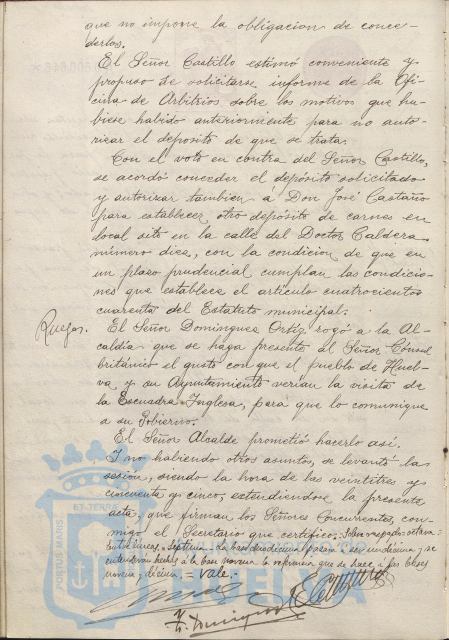 que no impone la obligacion de conce-
derlos.
El Señor Castillo estimó conveniente y
propuso de solicitarse informe de la Ofi-
cina de Arbitrios sobre los motivos que hu-
biese habido anteriormente para no auto-
rizar el depósito de que se trata.
Con el voto en contra del Señor Castillo,
se acordó conceder el depósito solicitado
y autorizar tambien á Don José Castaño
para establecer otro depósito de carnes en
local sito en la calle del Doctor Caldera
número diez, con la condicion de que en
un plazo prudencial cumplan las condicio-
nes que establece el artículo cuatrocientos
cuarenta del Estatuto municipal.
Ruegos.
El Señor Dominguez Ortiz rogó a la Al-
caldía que se haga presente al Señor Cónsul
británico el gusto con que el pueblo de Huel-
va y su Ayuntamiento verían la visita de
la Escuadra Inglesa, para que lo comunique
a su Gobierno.
El Señor Alcalde prometió hacerlo así.
Y no habiendo otros asuntos, se levantó la
sesión, siendo la hora de las veintitres y
cincuenta y cinco, estendiendose la presente
acta, que firman los Señores Concurrentes, con-
migo el Secretario que certifico. Sobre raspado: octava
Entre líneas: septima la base duodécima pasara a ser undecima, y se
entenderán hechas a la base novena la referencia que se hace a las bases
novena décima = vale.
PORTUS MARIS ET TERRAE